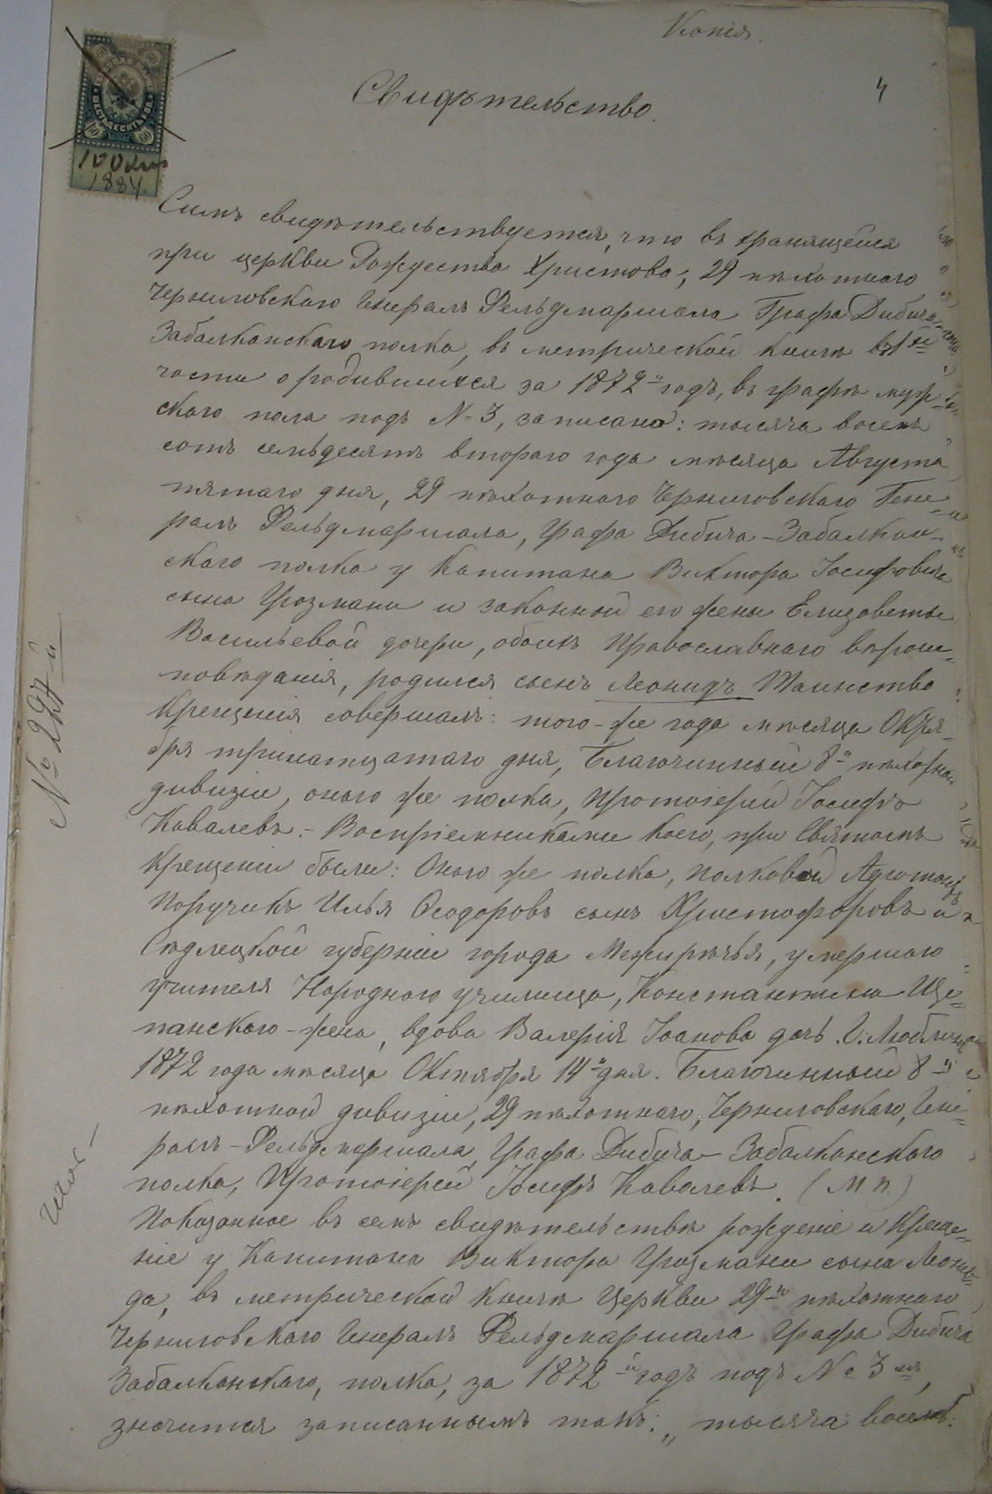 Копія.
4
Свидѣтельство.
1884
Симъ свидѣтельствуется, что въ хранящейся
при церкви Рождества Христова, 29 пѣхотнаго
Черниговскаго Генералъ Фельдмаршала Графа Дибича-
Забалканскаго полка, въ метрической книгѣ въ 1й
части о родившихся за 1872й годъ, въ графѣ муж-
скаго пола подъ № 3, записано: тысяча восемь
сотъ семьдесятъ втораго года мѣсяца Августа
пятаго дня, 29 пѣхотнаго Черниговскаго Гене-
ралъ Фельдмаршала, Графа Дибича-Забалкан-
скаго полка у Капитана Виктора Іосифовича
сына Грозмани и законной его жены Елизаветы
Васильевой дочери, обоихъ Православнаго вѣроис-
повѣданія, родился сынъ Леонидъ Таинство
Крещенія совершалъ: того-же года мѣсяца Октя-
бря тринатцатаго дня, Благочинный 8й пѣхотной
дивизіи, оного же полка, Протоіерей Іосифъ
Ковалевъ. - Воспріемниками коего, при Святомъ
Крещеніи были: Оного же полка, полковой Адъютантъ
Поручикъ Илья Ѳеодоровъ сынъ Христофоровъ и
Сѣдлецкой губерніи города Межирѣчья, умершаго
учителя Народнаго училища, Константина Ще-
панскаго - жена, вдова Валерія Іоанова дочь. Г. Люблинъ
1872 года мѣсяца Октября 14го дня. Благочинный 8й
пѣхотной дивизіи, 29 пѣхотнаго, Черниговскаго, Гене-
ралъ-Фельдмаршала, Графа Дибича-Забалканскаго
полка, Протоіерей Іосифъ Ковалевъ. (М п.)
Показанное въ семъ свидѣтельствѣ рожденіе и Креще-
ніе у Капитана Виктора Грозмани сына Леони-
да, въ метрической книгѣ Церкви 29го пѣхотнаго
Черниговскаго Генералъ Фельдмаршала Графа Дибича
Забалканскаго, полка, за 1872й годъ подъ № 3мъ,
значится записаннымъ такъ: „тысяча восемь-
№ 227й